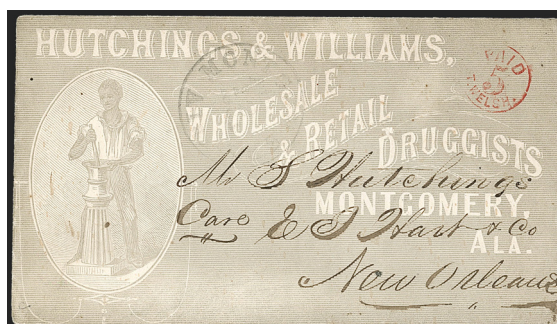 HUTCHINGS & WILLIAMS,
WHOLESALE
& RETAIL
DRUGGISTS
MONTGOMERY,
ALA.
PAID
5
T. WELSH.
Mr S Hutchings
Care E J Hart & Co
New Orleans